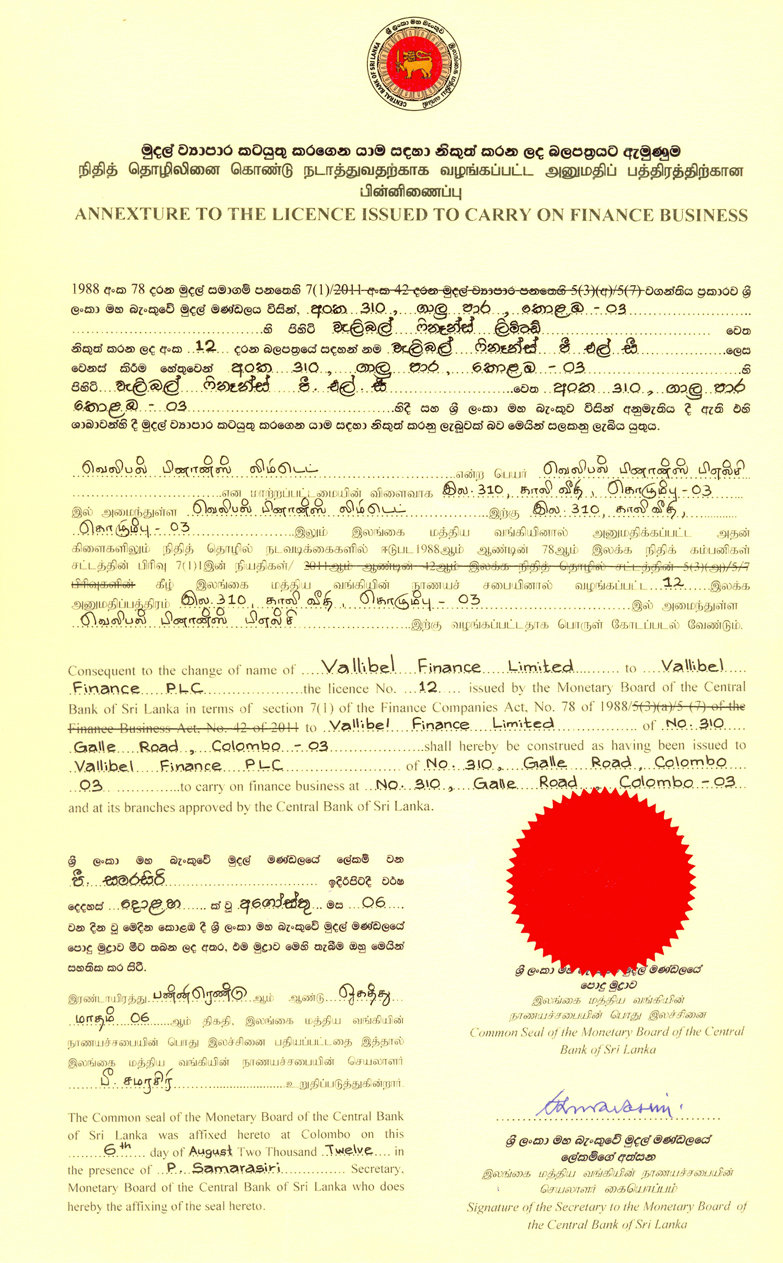 ශ්‍රී ලංකා මහ බැංකුව
இலங்கை மத்திய வங்கி
CENTRAL BANK OF SRI LANKA
මුදල් ව්‍යාපාර කටයුතු කරගෙන යාම සඳහා නිකුත් කරන ලද බලපත්‍රයට ඇමුණුම
நிதித் தொழிலினை கொண்டு நடாத்துவதற்காக வழங்கப்பட்ட அனுமதிப் பத்திரத்திற்கான
பின்னிணைப்பு
ANNEXTURE TO THE LICENCE ISSUED TO CARRY ON FINANCE BUSINESS
1988 අංක 78 දරන මුදල් සමාගම් පනතෙහි 7(1)/2011 අංක 42 දරන මුදල් ව්‍යාපාර පනතෙහි 5(3)(අ)/5(7) වගන්තිය ප්‍රකාරව ශ්‍රී
ලංකා මහ බැංකුවේ මුදල් මණ්ඩලය විසින්, අංක 310, ගාලු පාර, කොළඹ - 03
හි පිහිටි වැලිබල් ෆිනෑන්ස් ලිමිටඩ් වෙත
නිකුත් කරන ලද අංක 12 දරන බලපත්‍රයේ සඳහන් නම වැලිබල් ෆිනෑන්ස් පී එල් සී ලෙස
වෙනස් කිරීම හේතුවෙන් අංක 310, ගාලු පාර, කොළඹ - 03 හි
පිහිටි වැලිබල් ෆිනෑන්ස් පී. එල් සී වෙත අංක 310, ගාලු පාර
කොළඹ - 03 හිදී සහ ශ්‍රී ලංකා මහ බැංකුව විසින් අනුමැතිය දී ඇති එහි
ශාඛාවන්හි දී මුදල් ව්‍යාපාර කටයුතු කරගෙන යාම සඳහා නිකුත් කරනු ලැබුවක් බව මෙයින් සලකනු ලැබිය යුතුය.
வெலிபல் பினான்ஸ் லிமிடெட் என்ற பெயர் வெலிபல் பினான்ஸ் பிஎல்சி
என மாற்றப்பட்டமையின் விளைவாக இல. 310, காலி வீதி, கொழும்பு - 03
இல் அமைந்துள்ள வெலிபல் பினான்ஸ் லிமிடெட் இற்கு இல. 310, காலி வீதி,
கொழும்பு - 03 இலும் இலங்கை மத்திய வங்கியினால் அனுமதிக்கப்பட்ட அதன்
கிளைகளிலும் நிதித் தொழில் நடவடிக்கைகளில் ஈடுபட 1988ஆம் ஆண்டின் 78ஆம் இலக்க நிதிக் கம்பனிகள்
சட்டத்தின் பிரிவு 7(1)இன் நியதிகள்/ 2011ஆம் ஆண்டின் 42ஆம் இலக்க நிதித் தொழில் சட்டத்தின் 5(3)(அ)/5/7
பிரிவுகளின் கீழ் இலங்கை மத்திய வங்கியின் நாணயச் சபையினால் வழங்கப்பட்ட 12 இலக்க
அனுமதிப்பத்திரம் இல. 310, காலி வீதி, கொழும்பு - 03 இல் அமைந்துள்ள
வெலிபல் பினான்ஸ் பிஎல்சி இற்கு வழங்கப்பட்டதாக பொருள் கோடப்படல் வேண்டும்.
Consequent to the change of name of Vallibel Finance Limited to Vallibel
Finance PLC the licence No. 12 issued by the Monetary Board of the Central
Bank of Sri Lanka in terms of section 7(1) of the Finance Companies Act, No. 78 of 1988/5(3)(a)/5 (7) of the
Finance Business Act, No. 42 of 2011 to Vallibel Finance Limited of No. 310
Galle Road, Colombo - 03 shall hereby be construed as having been issued to
Vallibel Finance PLC of No. 310, Galle Road, Colombo
03 to carry on finance business at No. 310, Galle Road, Colombo - 03
and at its branches approved by the Central Bank of Sri Lanka.
ශ්‍රී ලංකා මහ බැංකුවේ මුදල් මණ්ඩලයේ ලේකම් වන
පී. සමරසිරි ඉදිරිපිටදී වර්ෂ
දෙදහස් දොළහ ක් වූ අගෝස්තු මස 06
වන දින වූ මෙදින කොළඹ දී ශ්‍රී ලංකා මහ බැංකුවේ මුදල් මණ්ඩලයේ
පොදු මුද්‍රාව මීට තබන ලද අතර, එම මුද්‍රාව මෙහි තැබීම ඔහු මෙයින්
සහතික කර සිටී.
இரண்டாயிரத்து பன்னிரெண்டு ஆம் ஆண்டு ஓகத்து
மாதம் 06 ஆம் திகதி, இலங்கை மத்திய வங்கியின்
நாணயச்சபையின் பொது இலச்சினை பதியப்பட்டதை இத்தால்
இலங்கை மத்திய வங்கியின் நாணயச்சபையின் செயலாளர்
பீ. சமரசிரி உறுதிப்படுத்துகின்றார்.
The Common seal of the Monetary Board of the Central Bank
of Sri Lanka was affixed hereto at Colombo on this
6th day of August Two Thousand Twelve in
the presence of P. Samarasiri Secretary,
Monetary Board of the Central Bank of Sri Lanka who does
hereby the affixing of the seal hereto.
ශ්‍රී ලංකා මහ බැංකුවේ මුදල් මණ්ඩලයේ
පොදු මුද්‍රාව
இலங்கை மத்திய வங்கியின்
நாணயச்சபையின் பொது இலச்சினை
Common Seal of the Monetary Board of the Central
Bank of Sri Lanka
ශ්‍රී ලංකා මහ බැංකුවේ මුදල් මණ්ඩලයේ
ලේකම්ගේ අත්සන
இலங்கை மத்திய வங்கியின் நாணயச்சபையின்
செயலாளர் கையொப்பம்
Signature of the Secretary to the Monetary Board of
the Central Bank of Sri Lanka